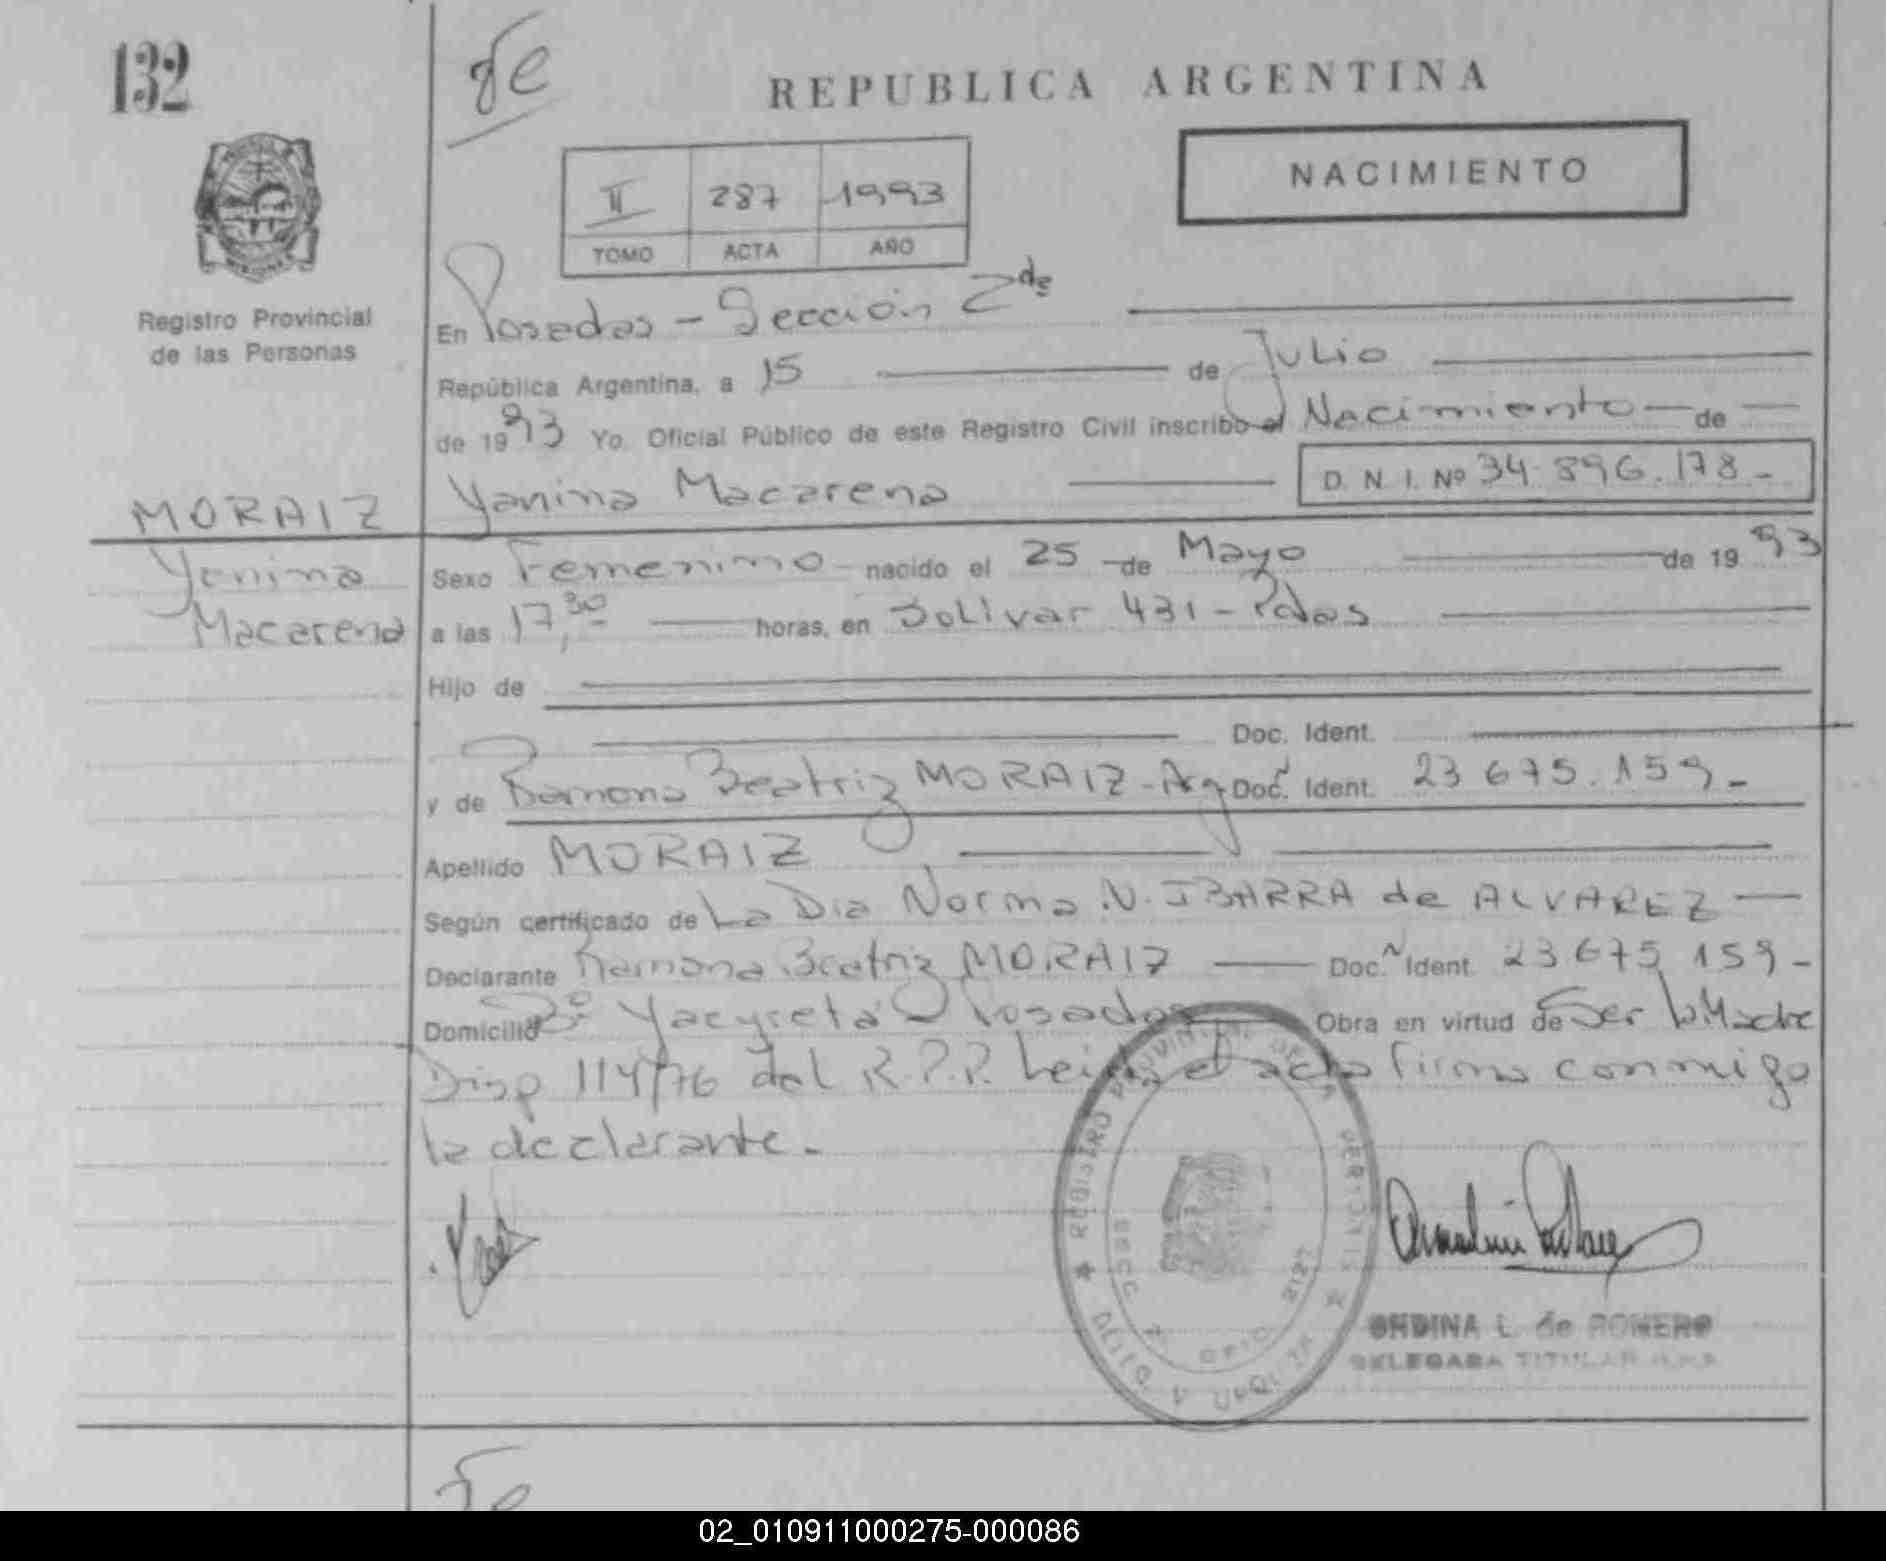 132
Fe
REPUBLICA ARGENTINA
NACIMIENTO
II 287 1993
TOMO ACTA AÑO
Registro Provincial
de las Personas
En Posadas - Sección 2da
República Argentina, a 15 de Julio
de 1993 Yo. Oficial Público de este Registro Civil inscribo el Nacimiento de
Yanina Macarena D. N. I. Nº 34.896.178-
MORAIZ
Yanina
Macarena
Sexo Femenino nacido el 25 de Mayo de 1993
a las 17,30 horas, en Bolivar 431 - Pdas
Hijo de
Doc. Ident.
y de Ramona Beatriz MORAIZ - Arg Doc. Ident. 23 675.159-
Apellido MORAIZ
Según certificado de La Dra Norma N. IBARRA de ALVAREZ
Declarante Ramona Beatriz MORAIZ Doc. Ident. 23 675 159-
Domicilio Bº Yacyreta Posadas Obra en virtud de Ser la Madre
Disp 114/76 del R.P.P. Leida el acta firma conmigo
la declarante.-
REGISTRO PROVINCIAL DE LAS PERSONAS
SECC 2
OFIC 2127
ONDINA L. de ROMERO
DELEGADA TITULAR
Fe
02_010911000275-000086